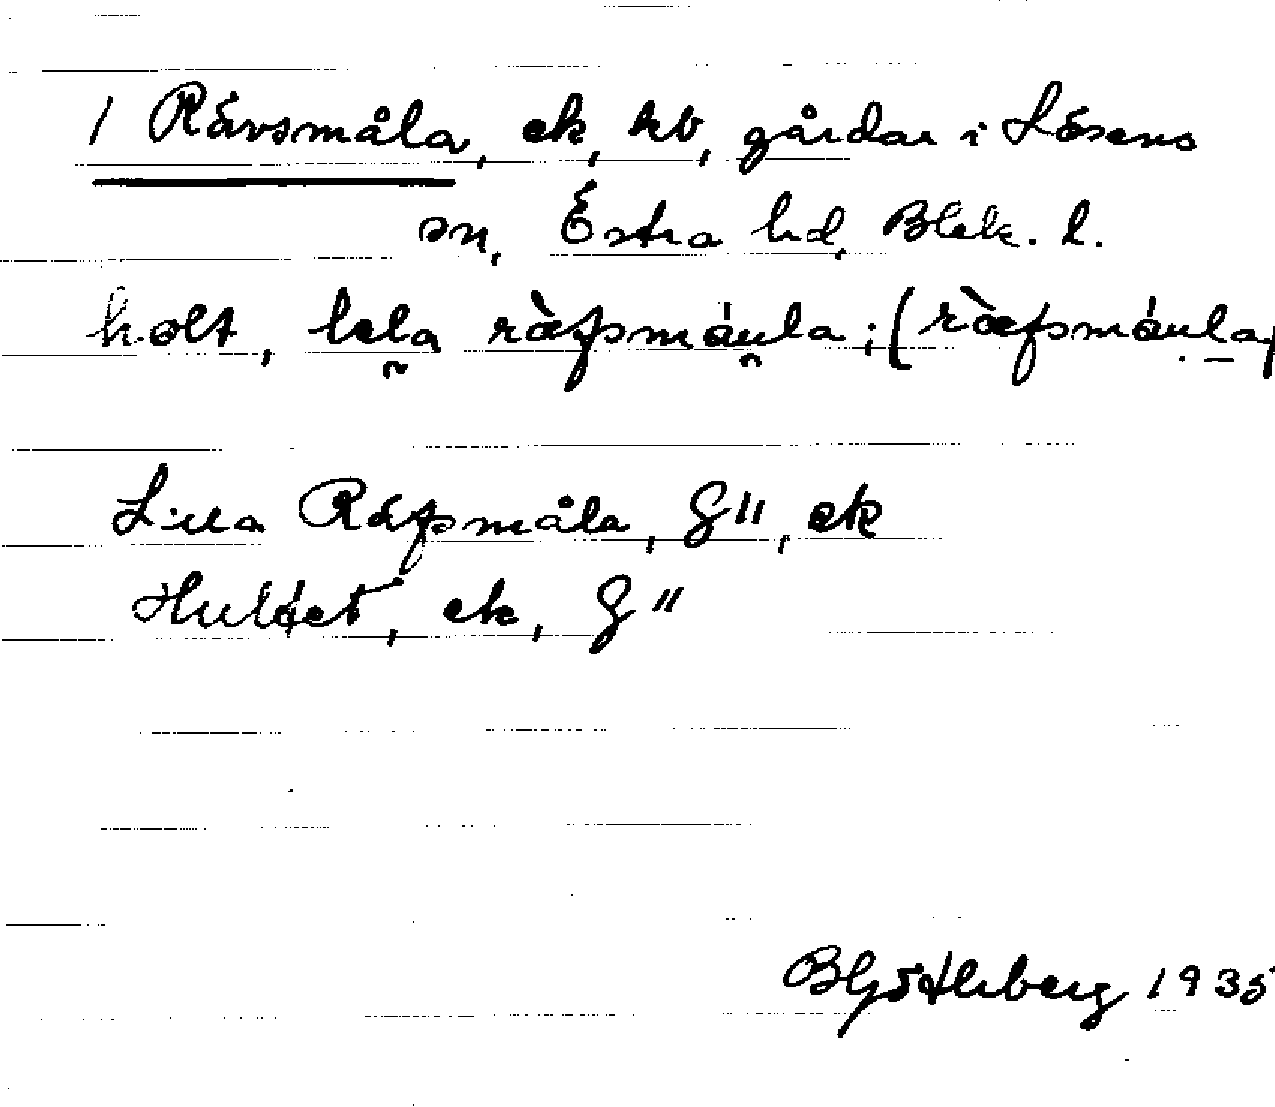 1 Rävsmåla, ek, kv, gårdar i Lösens
sn, Östra hd, Blek. l.
hølt, lela ràfsmáula; (ràfsmáula)
Lilla Räfsmåla, G", ek
Hultet, ek, G"
B Götlberg 1935